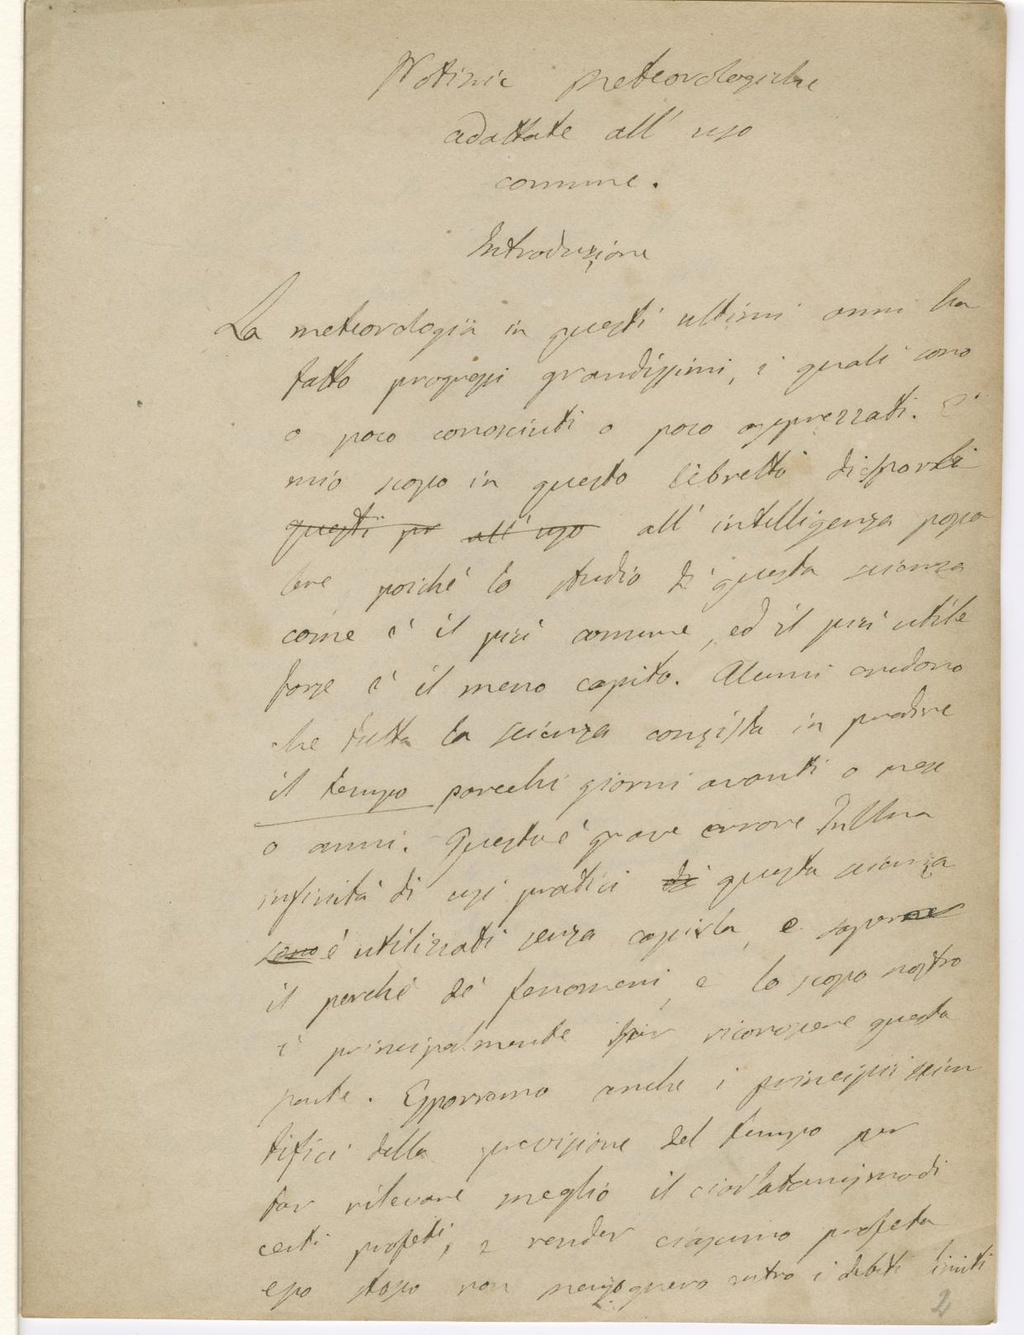 Notizie meteorologiche
adattate all' uso
comune.
Introduzione
La meteorologia in questi ultimi anni ha
fatto progressi grandissimi, i quali sono
o poco conosciuti o poco apprezzati. E'
mio scopo in questo libretto disporli
questi per all' uso all' intelligenza popo
lare poiché lo studio di questa scienza
come è il più comune, ed il più utile
forse è il meno capito. Alcuni credono
che tutta la scienza consista in predire
il tempo parecchi giorni avanti o mesi
o anni. Questo è grave errore
infinità di usi pratici di questa scienza
sono è utilizzati senza capirla, e sapere
il perché de' fenomeni, e lo scopo nostro
è principalmente questa
parte. Esporremo anche i principii scien
tifici della previsione del tempo per
far rilevare meglio il ciarlatanismo di
certi profeti, e render ciascuno profeta
esso stesso non entro i debiti limiti
2